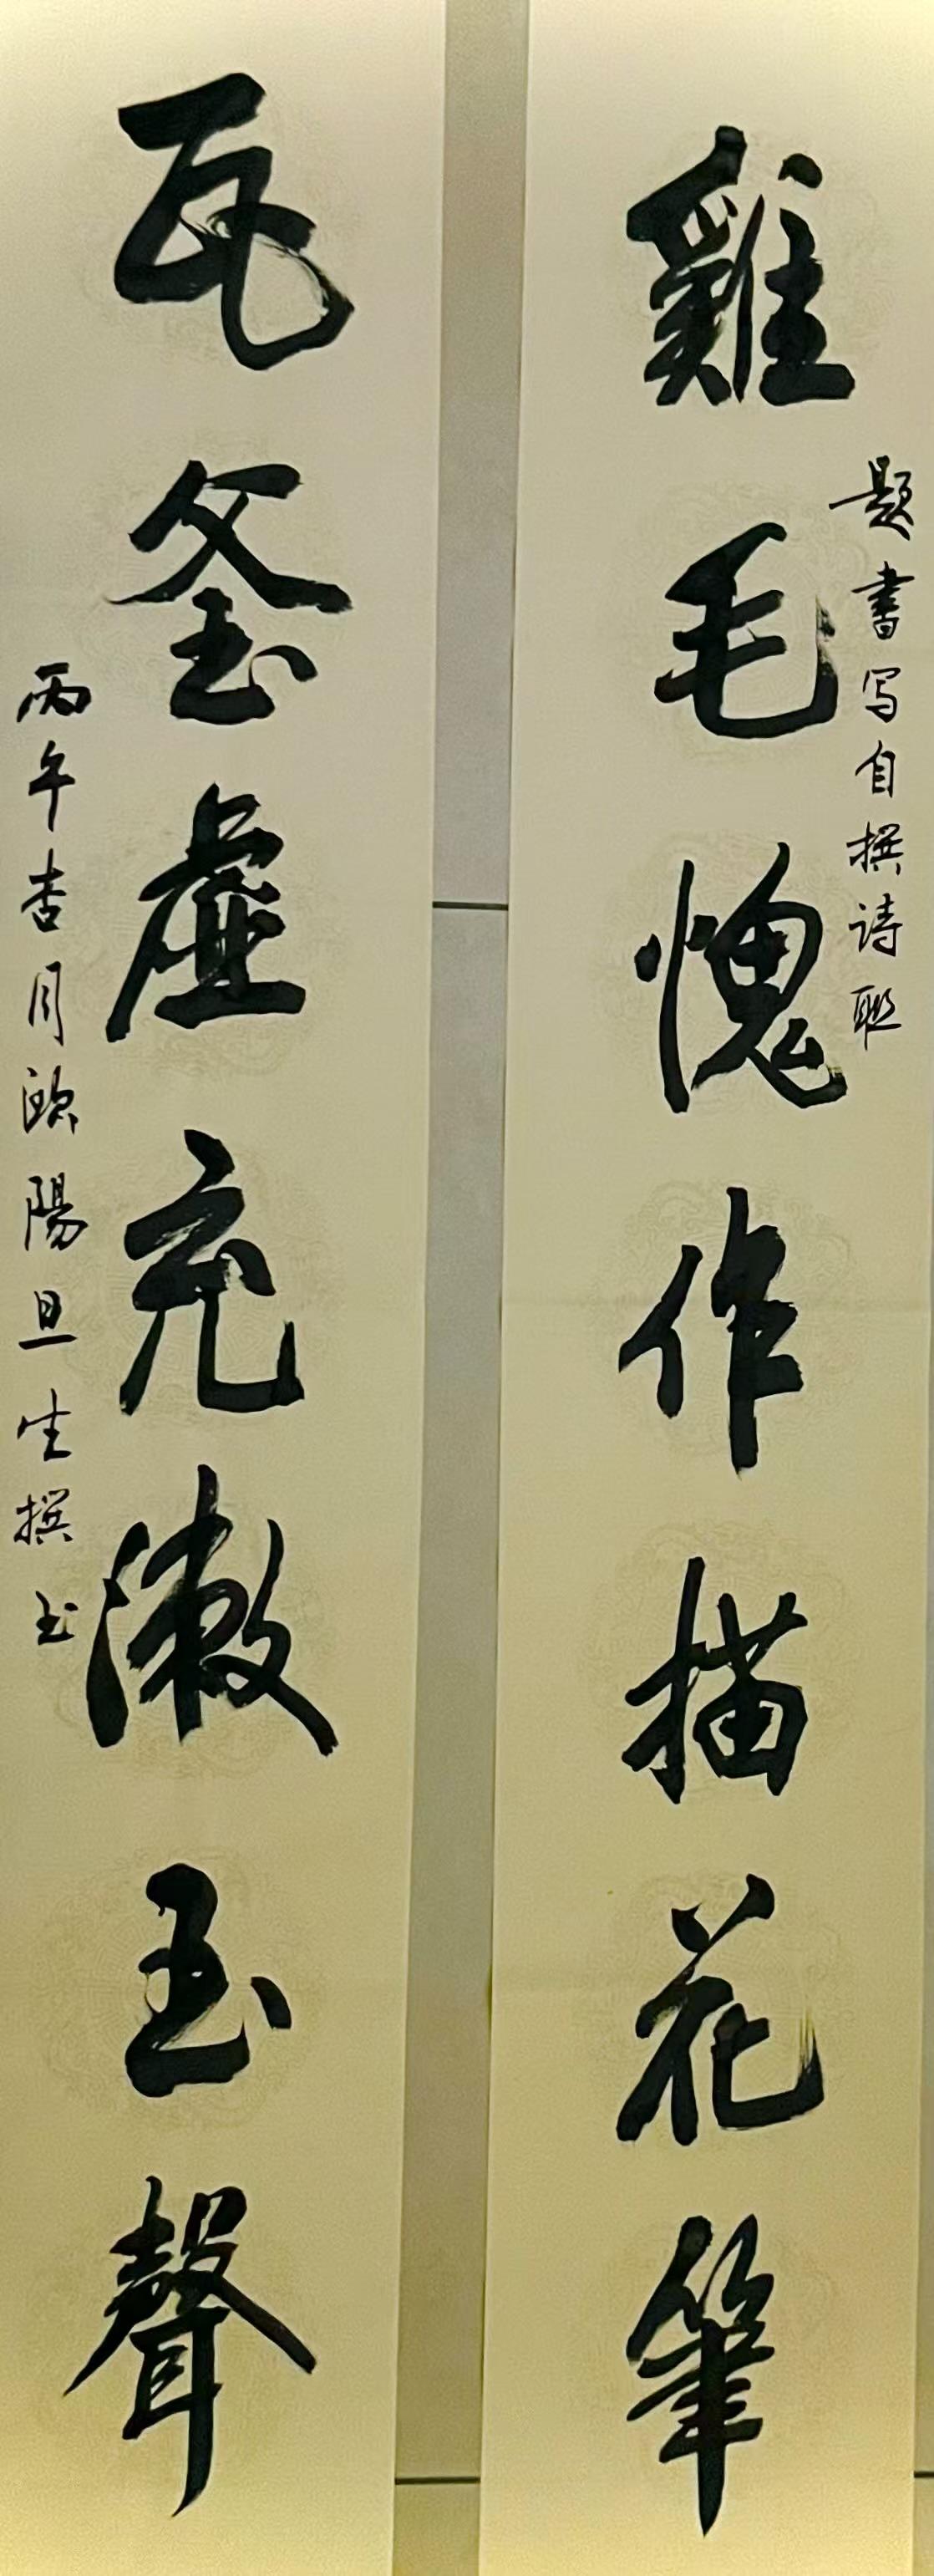 題書写自撰诗联
雞毛愧作描花筆
瓦釜虛充漱玉聲
丙午杏月欧陽旦生撰书